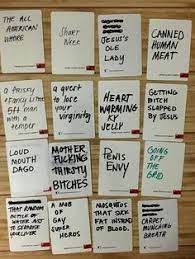 THE ALL
AMERICAN
WHORE
Shart
Week
JESUS'S
OLE
LADY
CANNED
HUMAN
MEAT
a thirsty
5ft man
with a
temper
a quest
to lose
your
virginity
HEART
WARMING
KY
JELLY
GETTING
BITCH
SLAPPED
BY JESUS
LOUD
MOUTH
DAGO
MOTHER
FUCKING
THIRSTY
BITCHES
PENIS
ENVY
GOING
OFF
THE
GRID
THAT RANDOM
BOTTLE OF
WATER
YOUR LIVER
A MOB
OF GAY
SUPER
HEROS
MOSQUITOS
THAT SUCK
FAT INSTEAD
OF BLOOD.
CARPET
MUNCHING
BREATH